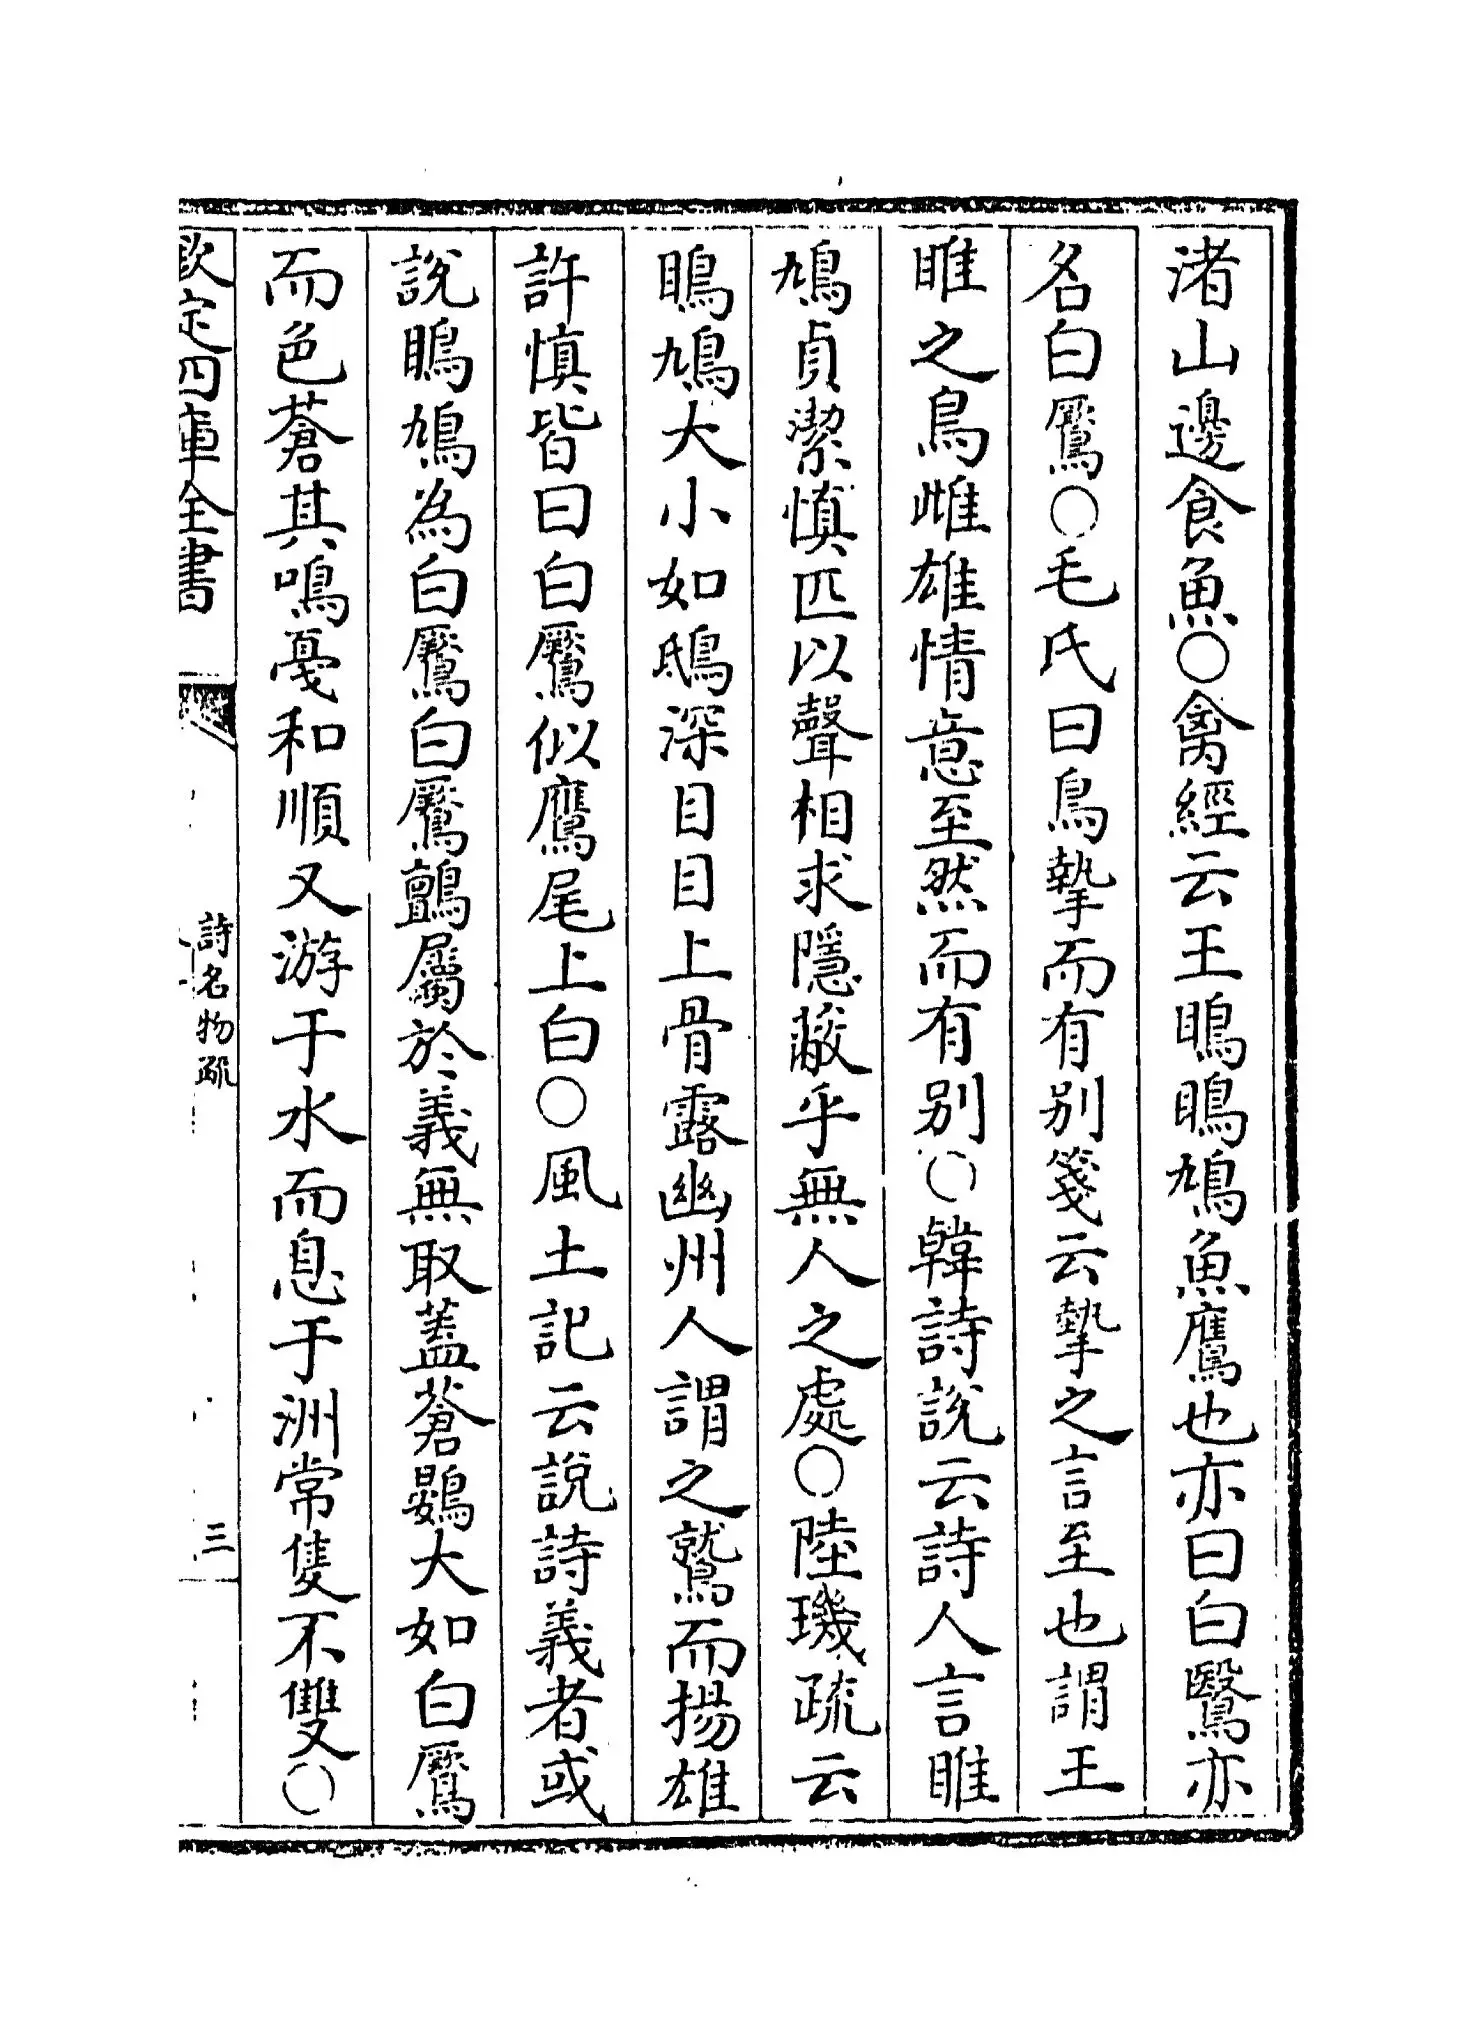 渚山邊食魚〇禽經云王鴡鴡鳩魚鷹也亦曰白鷖亦
名白鷢〇毛氏曰鳥摯而有别箋云摯之言至也謂王
睢之鳥雌雄情意至然而有别〇韓詩說云詩人言睢
鳩貞潔慎匹以聲相求隱蔽乎無人之處〇陸璣疏云
鴡鳩大小如鴟深目目上骨露幽州人謂之鷲而揚雄
許慎皆曰白鷢似鷹尾上白〇風土記云說詩義者或
說鴡鳩為白鷢白鷢鸇屬於義無取蓋蒼鷃大如白鷢
而色蒼其鳴戞和順又游于水而息于洲常隻不雙〇
欽定四庫全書
詩名物疏
三